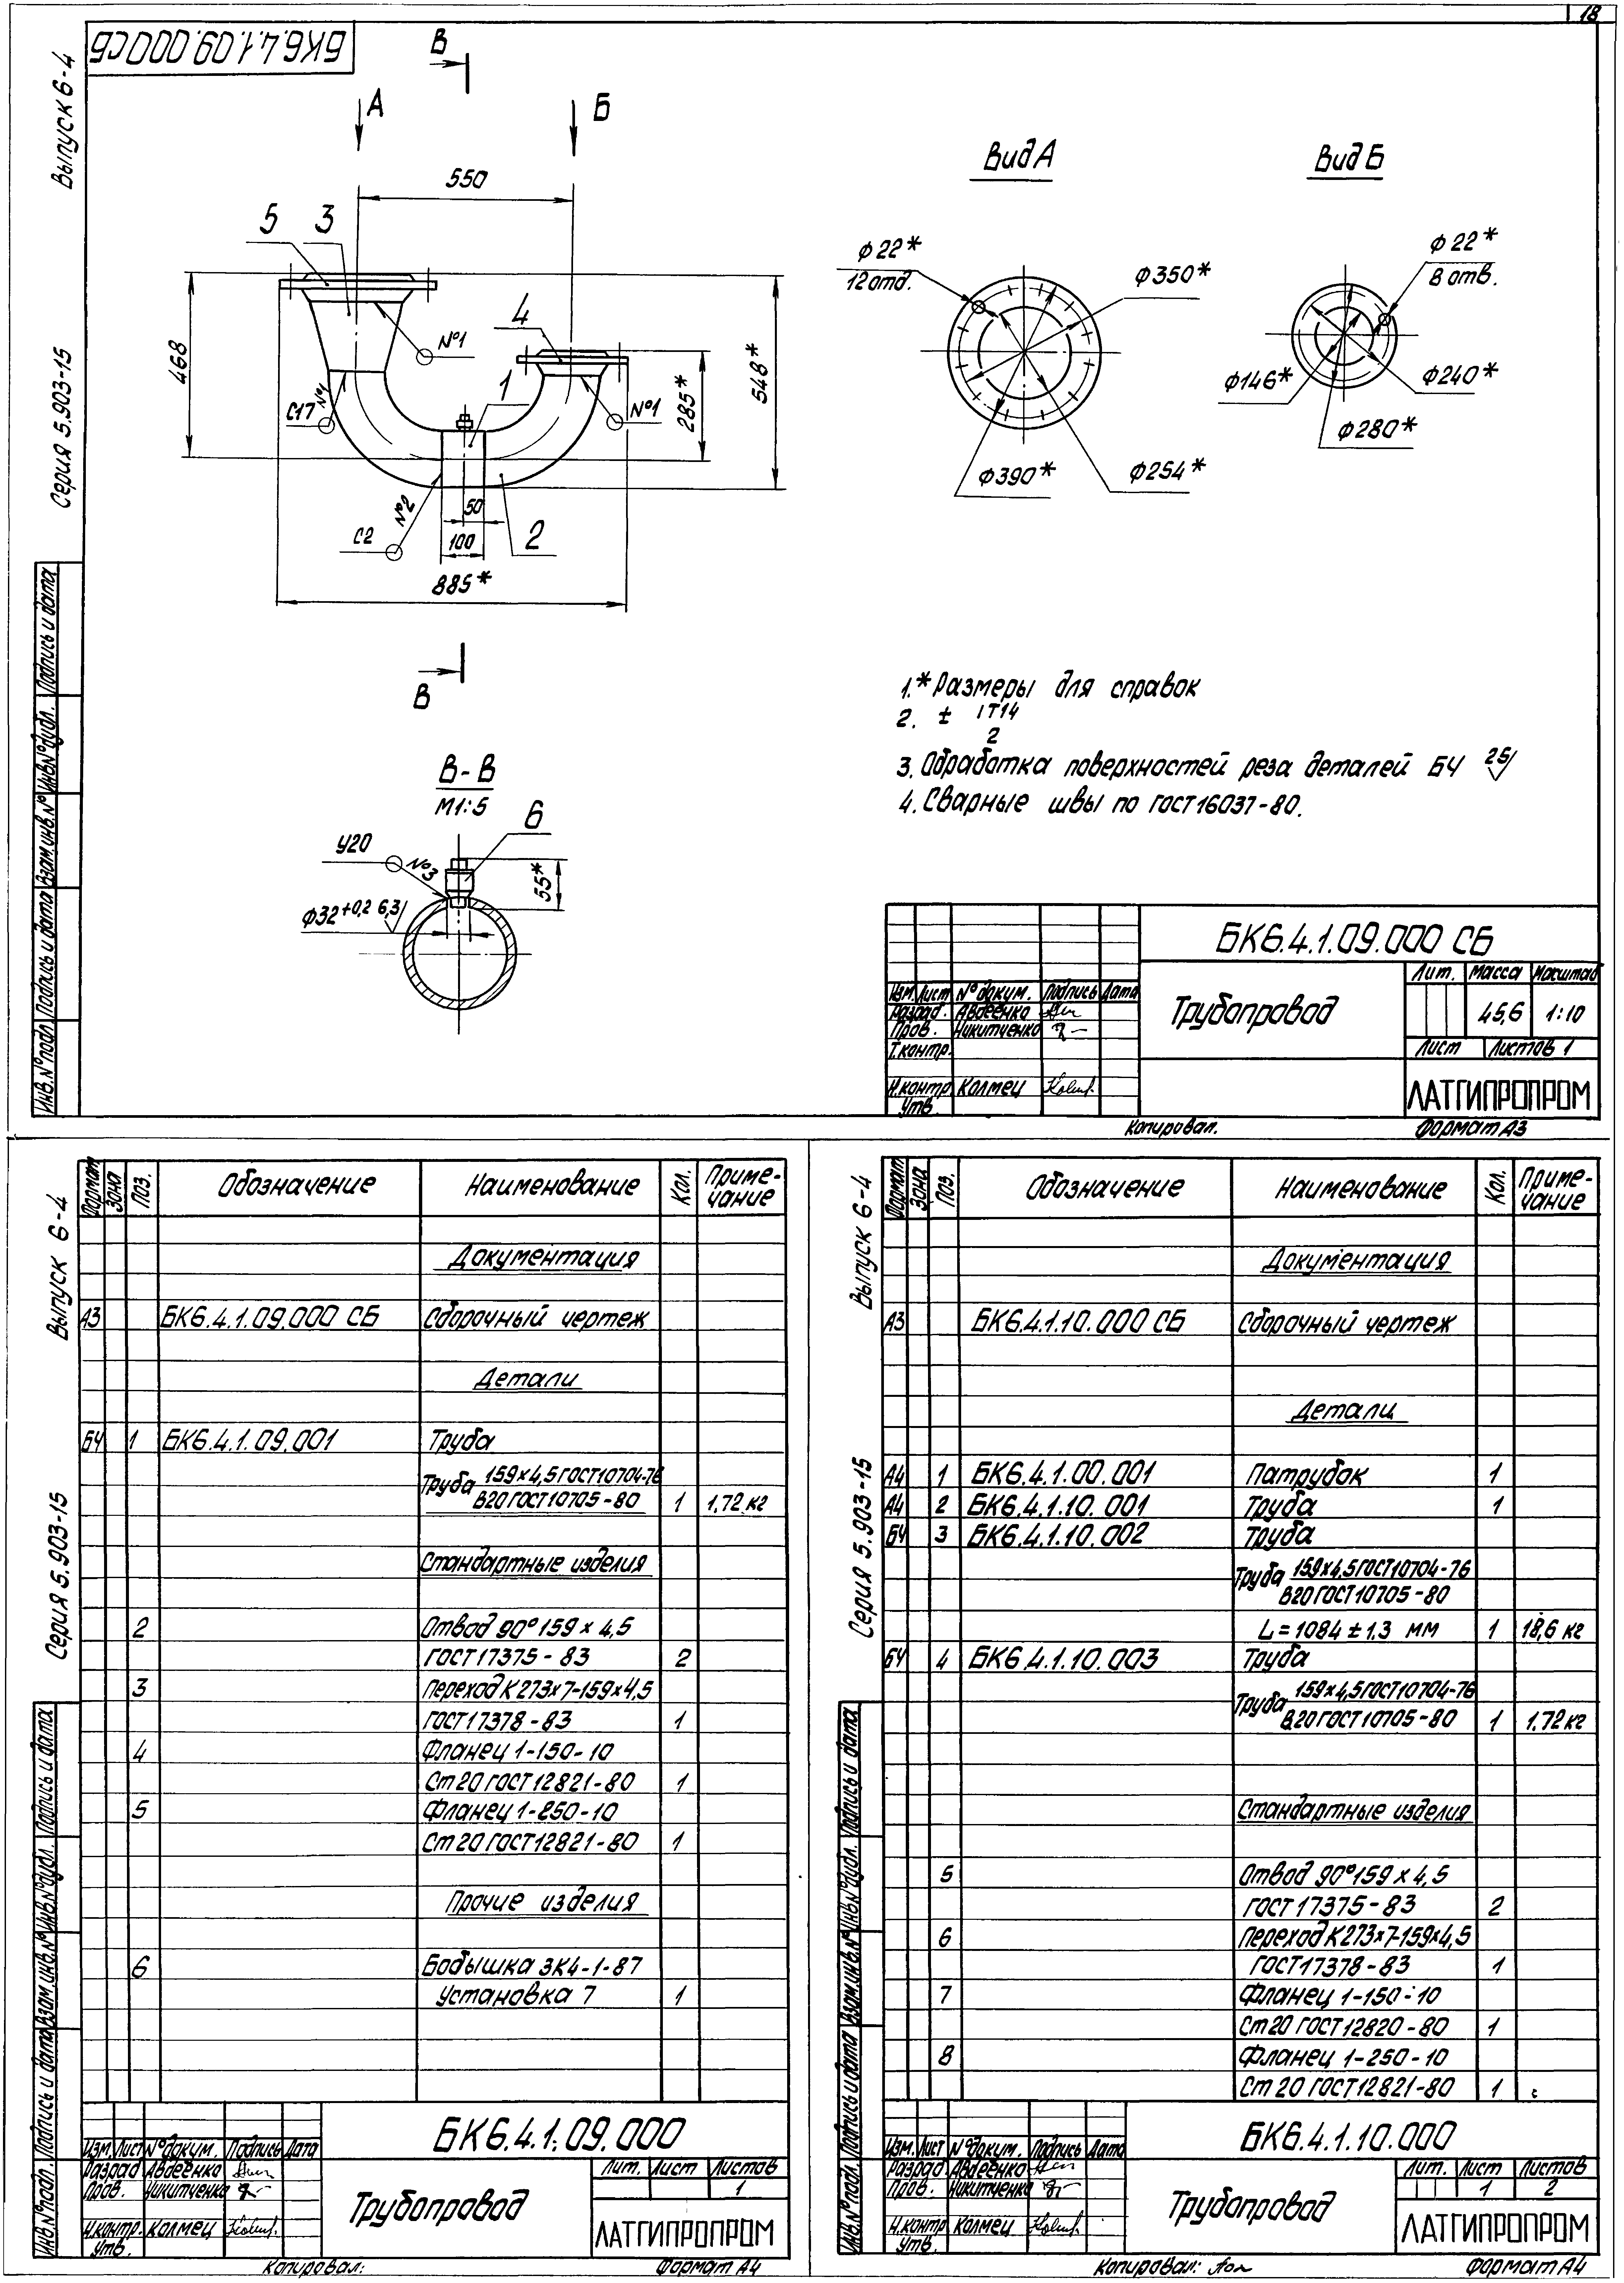 18
БК6.4.1.09.000СБ
Выпуск 6-4
Серия 5.903-15
В
А
Б
550
5
3
4
1
2
№1
№1
№1
С17
№2
С2
468
548*
285*
50
100
885*
В
Вид А
Ф22*
12 отд.
Ф350*
Ф390*
Ф254*
Вид Б
Ф22*
8 отв.
Ф146*
Ф240*
Ф280*
В-В
М1:5
6
У20
№3
55*
Ф32 +0,2 6,3
1.* Размеры для справок
2. ± IT14
2
3. Обработка поверхностей реза деталей БЧ 25
4. Сварные швы по ГОСТ 16037-80.
Инв.№подл Подпись и дата Взам.инв.№ Инв№дубл. Подпись и дата
БК6.4.1.09.000 СБ
Трубопровод
Лит. Масса Масштаб
45,6 1:10
Лист Листов 1
ЛАТГИПРОПРОМ
Изм. Лист № докум. Подпись Дата
Разраб. Авдеенко
Пров. Никитченко
Т.контр.
Н.контр Колмец
Утв.
Копировал.
Формат А3
Выпуск 6-4
Серия 5.903-15
Формат Зона Поз. Обозначение Наименование Кол. Приме-
чание
Документация
А3 БК6.4.1.09.000 СБ Сборочный чертеж
Детали
БЧ 1 БК6.4.1.09.001 Труба
Труба 159×4,5 ГОСТ10704-76
В20 ГОСТ10705-80 1 1,72 кг
Стандартные изделия
2 Отвод 90° 159 × 4,5
ГОСТ 17375-83 2
3 Переход К 273×7-159×4,5
ГОСТ 17378-83 1
4 Фланец 1-150-10
Ст 20 ГОСТ 12821-80 1
5 Фланец 1-250-10
Ст 20 ГОСТ 12821-80 1
Прочие изделия
6 Бобышка ЗК4-1-87
Установка 7 1
Инв.№подл. Подпись и дата Взам.инв.№ Инв.№дубл. Подпись и дата
БК6.4.1.09.000
Изм. Лист № докум. Подпись Дата
Разраб Авдеенко
Пров. Никитченко
Н.контр. Колмец
Утв.
Трубопровод
Лит. Лист Листов
1
ЛАТГИПРОПРОМ
Копировал:
Формат А4
Выпуск 6-4
Серия 5.903-15
Формат Зона Поз. Обозначение Наименование Кол. Приме-
чание
Документация
А3 БК6.4.1.10.000 СБ Сборочный чертеж
Детали
А4 1 БК6.4.1.00.001 Патрубок 1
А4 2 БК6.4.1.10.001 Труба 1
БЧ 3 БК6.4.1.10.002 Труба
Труба 159×4,5 ГОСТ10704-76
В20 ГОСТ10705-80
L=1084 ± 1,3 мм 1 18,6 кг
БЧ 4 БК6.4.1.10.003 Труба
Труба 159×4,5 ГОСТ10704-76
В20 ГОСТ10705-80 1 1,72 кг
Стандартные изделия
5 Отвод 90° 159 × 4,5
ГОСТ 17375-83 2
6 Переход К 273×7-159×4,5
ГОСТ17378-83 1
7 Фланец 1-150-10
Ст 20 ГОСТ 12820-80 1
8 Фланец 1-250-10
Ст 20 ГОСТ 12821-80 1
Инв.№подл. Подпись и дата Взам.инв.№ Инв.№дубл. Подпись и дата
БК6.4.1.10.000
Изм. Лист № докум. Подпись Дата
Разраб Авдеенко
Пров. Никитченко
Н.контр Колмец
Утв.
Трубопровод
Лит. Лист Листов
1 2
ЛАТГИПРОПРОМ
Копировал:
Формат А4